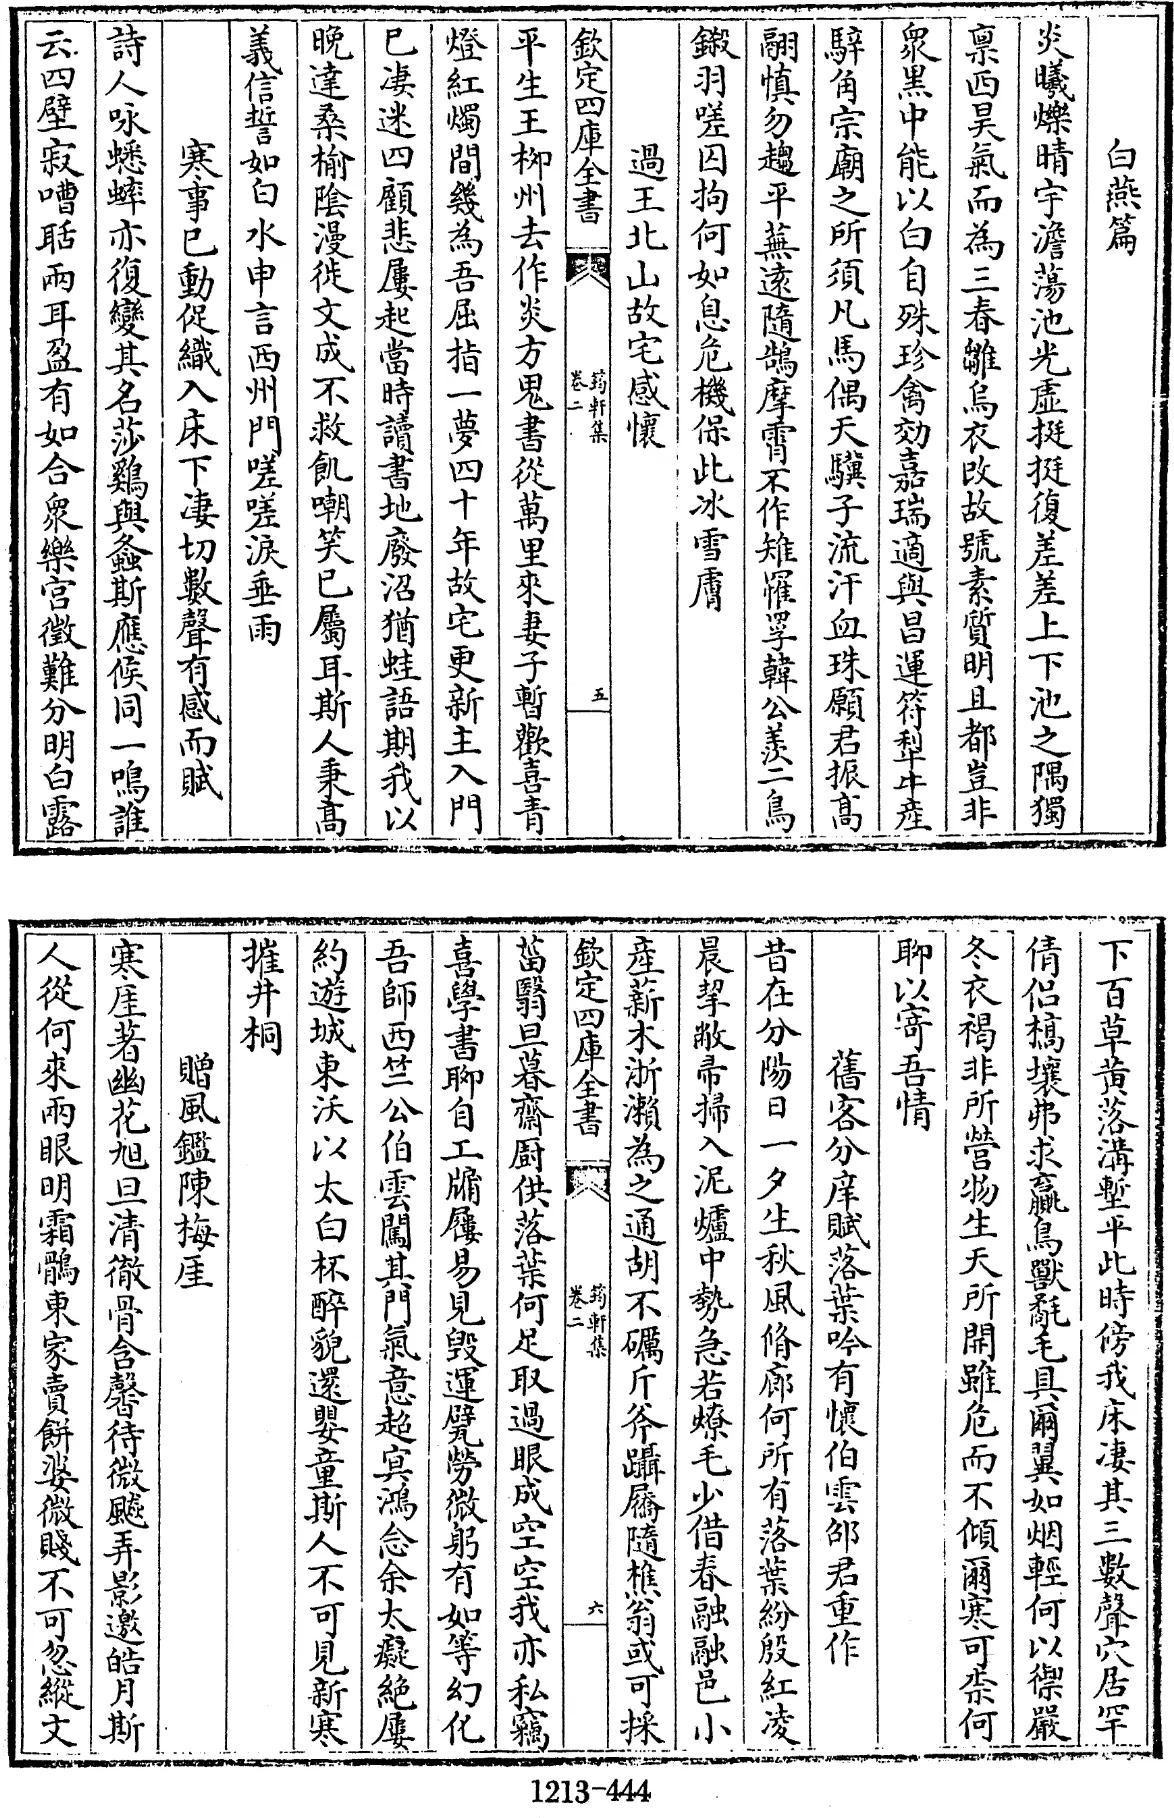 白燕篇
炎曦爍晴宇澹蕩池光虛挺挺復差差上下池之隅獨
禀西昊氣而為三春雛烏衣改故號素質明且都豈非
衆黑中能以白自殊珍禽効嘉瑞適與昌運符犁牛産
騂角宗廟之所須凡馬偶天驥子流汗血珠願君振高
翮慎勿趨平蕪遠隨鵠摩霄不作雉罹罦韓公羨二鳥
鎩羽嗟囚拘何如息危機保此冰雪膚
過王北山故宅感懷
欽定四庫全書
筠軒集
卷二
五
平生王柳州去作炎方鬼書從萬里來妻子暫歡喜青
燈紅燭間幾為吾屈指一夢四十年故宅更新主入門
已凄迷四顧悲屢起當時讀書地廢沼猶蛙語期我以
晚達桑榆陰漫徙文成不救飢嘲笑已屬耳斯人秉高
義信誓如白水申言西州門嗟嗟淚垂雨
寒事已動促織入床下凄切數聲有感而賦
詩人咏蟋蟀亦復變其名莎鷄與螽斯應候同一鳴誰
云四壁寂嘈聒兩耳盈有如合衆樂宫徵難分明白露
下百草黄落溝塹平此時傍我床凄其三數聲穴居罕
倩侣槁壤弗求贏鳥獸氄毛具爾翼如烟輕何以禦嚴
冬衣褐非所營物生天所開雖危而不傾爾寒可柰何
聊以寄吾情
舊客分庠賦落葉吟有懷伯雲邵君重作
昔在分陽日一夕生秋風脩廊何所有落葉紛殷紅凌
晨挈敝帚掃入泥爐中勢急若燎毛少借春融融邑小
産薪木浙瀨為之通胡不礪斤斧躡屩隨樵翁或可採
欽定四庫全書
筠軒集
卷二
六
菑翳旦暮齋厨供落葉何足取過眼成空空我亦私竊
喜學書聊自工牖屨易見毁運甓勞微躬有如等幻化
吾師西竺公伯雲闖其門氣意超冥鴻念余太癡絶屢
約遊城東沃以太白杯醉貌還嬰童斯人不可見新寒
摧井桐
贈風鑑陳梅厓
寒厓著幽花旭旦清徹骨含馨待微颸弄影邀皓月斯
人從何來兩眼明霜鶻東家賣餅婆微賤不可忽縱文
1213-444